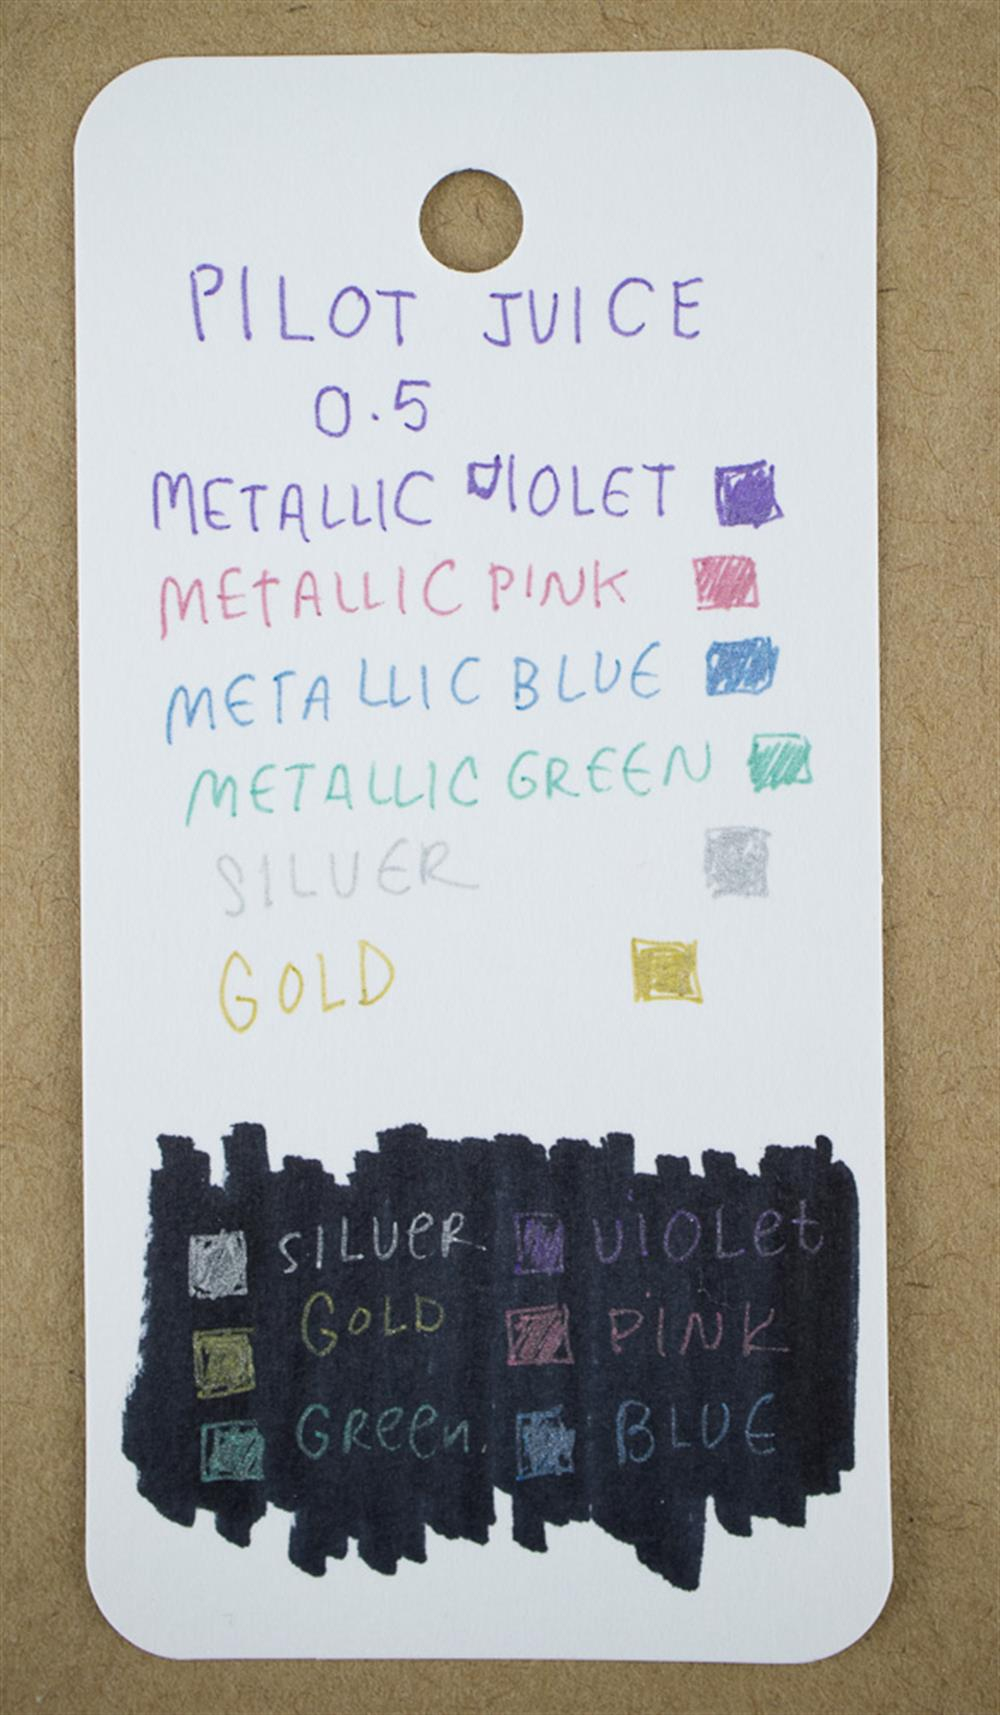 PILOT JUICE
0.5
METALLIC VIOLET
METALLIC PINK
METALLIC BLUE
METALLIC GREEN
SILVER
GOLD
SILVER VIOLET
GOLD PINK
GREEN. BLUE